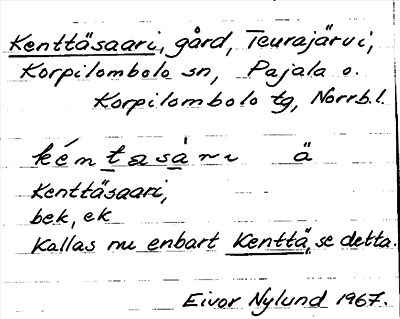 Kenttäsaari, gård, Teurajärvi,
Korpilombolo sn, Pajala o.
Korpilombolo tg, Norrb.l.
ä
Kenttäsaari,
bek, ek
Kallas nu enbart Kenttä, se detta.
Eivor Nylund 1967.